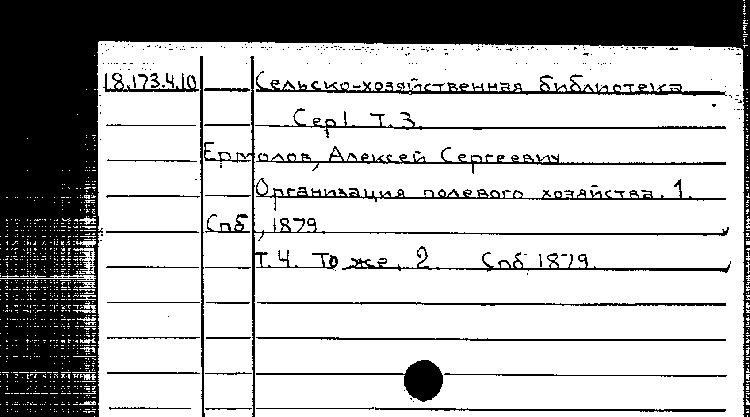 18.173.4.10 Сельско-хозяйственная библиотека
Сер I. Т. 3.
Ермолов, Алексей Сергеевич
Организация полевого хозяйства. 1.
Спб, 1879.
Т. 4. То же, 2. Спб, 1879.